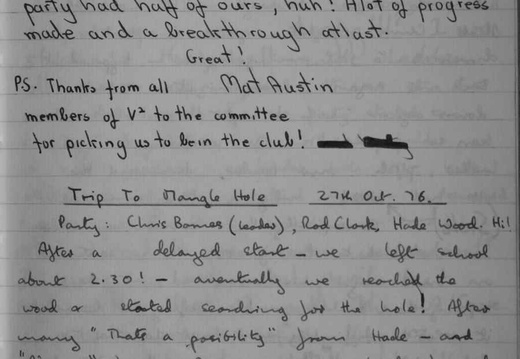 party had half of ours, huh! Alot of progress
made and a breakthrough atlast.
Great!
PS. Thanks from all Mat Austin
members of V² to the committee
for picking us to be in the club!
Trip To Mangle Hole 27th Oct. 76.
Party: Chris Bonnes (leader), Rod Clark, Hade Wood. Hi!
After a delayed start – we left school
about 2.30! – aventually we reached the
wood & started searching for the hole! After
many "Thats a posibility" from Hade – and